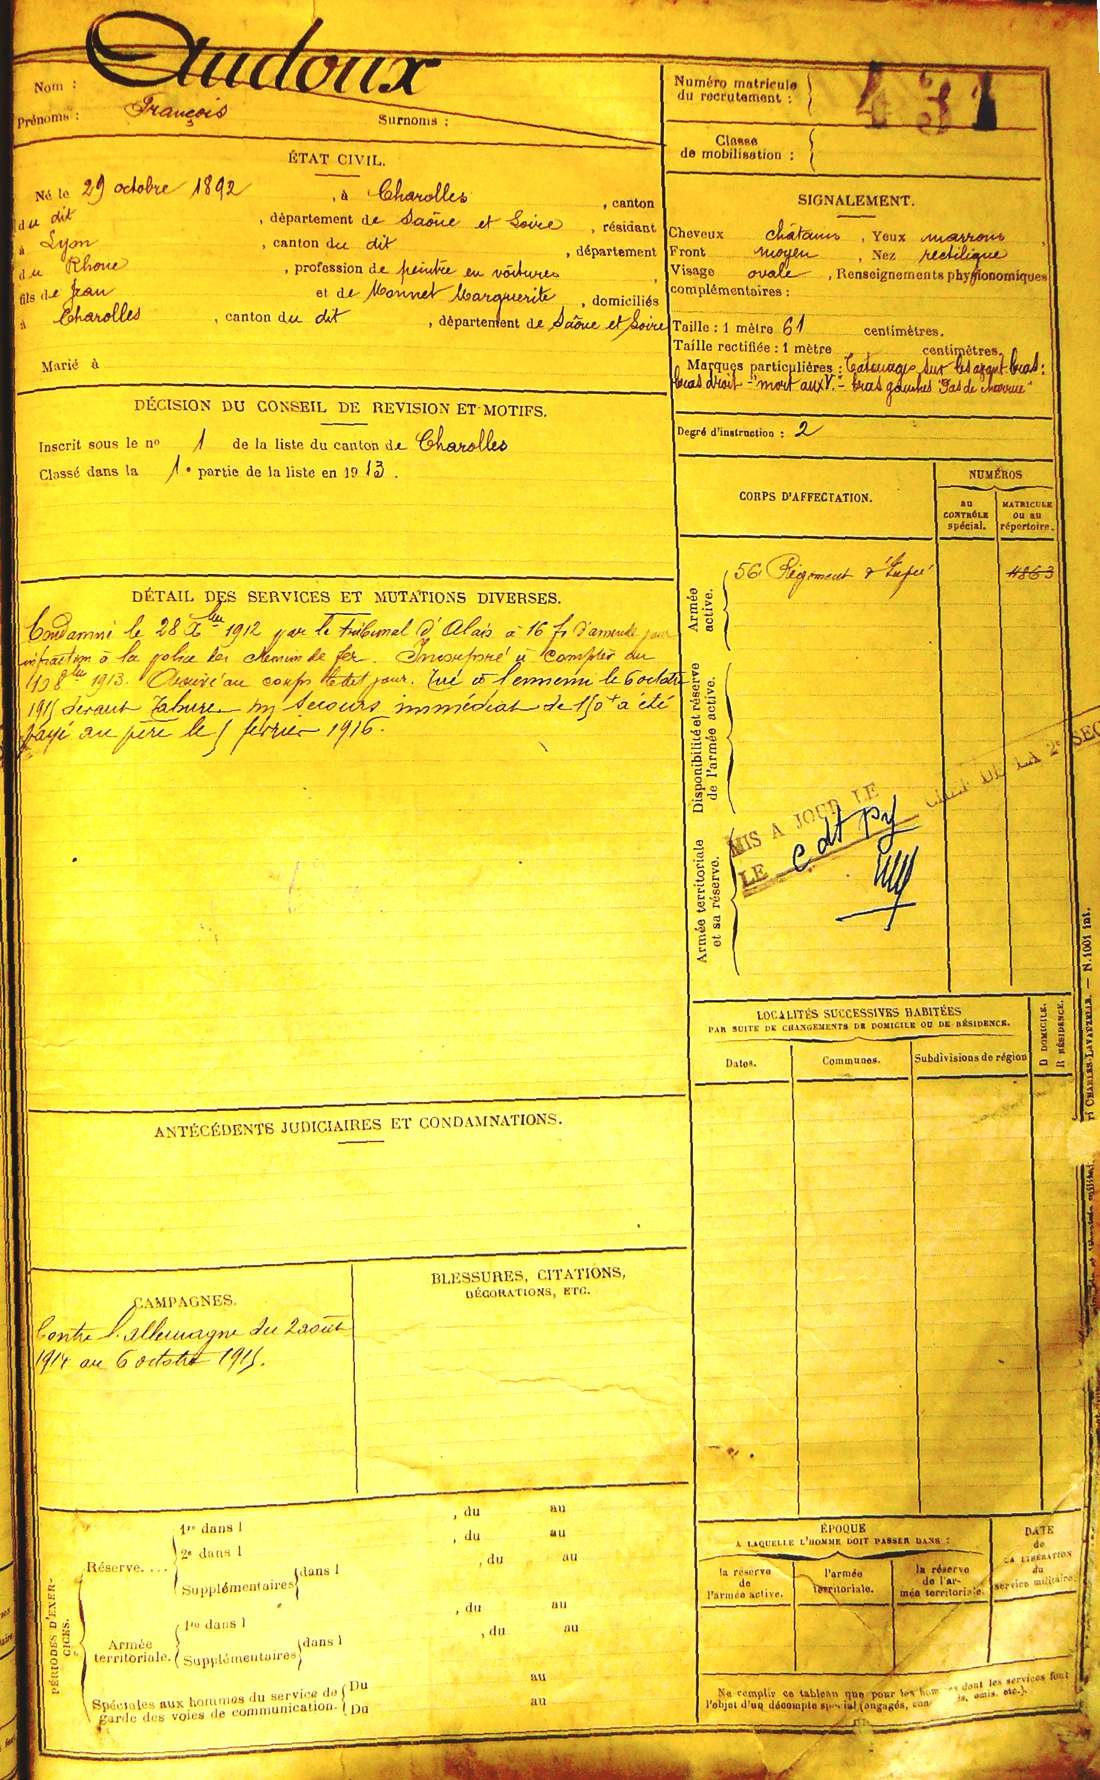 Nom : Audoux
Prénoms : François Surnoms :
Numéro matricule
du recrutement : 431
Classe
de mobilisation :
ÉTAT CIVIL.
Né le 29 octobre 1892, à Charolles, canton
du dit, département de Saône et Loire, résidant
à Lyon, canton du dit, département
du Rhone, profession de peintre en voitures,
fils de Jean et de Monnet Marguerite, domiciliés
à Charolles, canton du dit, département de Saône et Loire
Marié à
SIGNALEMENT.
Cheveux châtains, Yeux marrons,
Front moyen, Nez rectiligne
Visage ovale, Renseignements physionomiques
complémentaires :
Taille : 1 mètre 61 centimètres.
Taille rectifiée : 1 mètre centimètres.
Marques particulières : Tatouages sur les avant bras :
bras droit - "mort aux V." - bras gauches "Gas de charrue"
Degré d'instruction : 2
DÉCISION DU CONSEIL DE REVISION ET MOTIFS.
Inscrit sous le no 1 de la liste du canton de Charolles
Classé dans la 1e partie de la liste en 1913.
CORPS D'AFFECTATION.
NUMÉROS
au
CONTRÔLE
spécial.
MATRICULE
ou au
répertoire.
Armée
active.
56 Régiment d'Infie 4863
Disponibilité et réserve
de l'armée active.
Armée territoriale
et sa réserve.
MIS A JOUR LE
LE
CHEF DE LA 2e SEC
DÉTAIL DES SERVICES ET MUTATIONS DIVERSES.
Condamné le 28 Xbre 1912 par le tribunal d'Alais à 16 f d'amende pour
infraction à la police des chemins de fer. Incorporé à compter du
10 8bre 1913. Arrivé au corps le dit jour. Tué à l'ennemi le 6 octobre
1915 devant Tahure. Un secours immédiat de 150f a été
payé au père le 5 février 1916.
LOCALITÉS SUCCESSIVES HABITÉES
PAR SUITE DE CHANGEMENTS DE DOMICILE OU DE RÉSIDENCE.
Dates.
Communes.
Subdivisions de région
D DOMICILE.
R RÉSIDENCE.
ANTÉCÉDENTS JUDICIAIRES ET CONDAMNATIONS.
CAMPAGNES.
Contre l'Allemagne du 2 août
1914 au 6 octobre 1915.
BLESSURES, CITATIONS,
DÉCORATIONS, ETC.
PÉRIODES D'EXER-
CICES.
Réserve....
1re dans l , du au
2e dans l , du au
Supplémentaires dans l , du au
Armée
territoriale.
1re dans l , du au
Supplémentaires dans l , du au
Spéciales aux hommes du service de
garde des voies de communication.
Du au
Du au
ÉPOQUE
A LAQUELLE L'HOMME DOIT PASSER DANS :
la réserve
de
l'armée active.
l'armée
territoriale.
la réserve
de l'ar-
mée territoriale.
DATE
de
LA LIBÉRATION
du
service militaire.
Ne remplir ce tableau que pour les hommes dont les services font
l'objet d'un décompte spécial (engagés, omis, etc.).
CHARLES-LAVAUZELLE. — N. 1001 int.